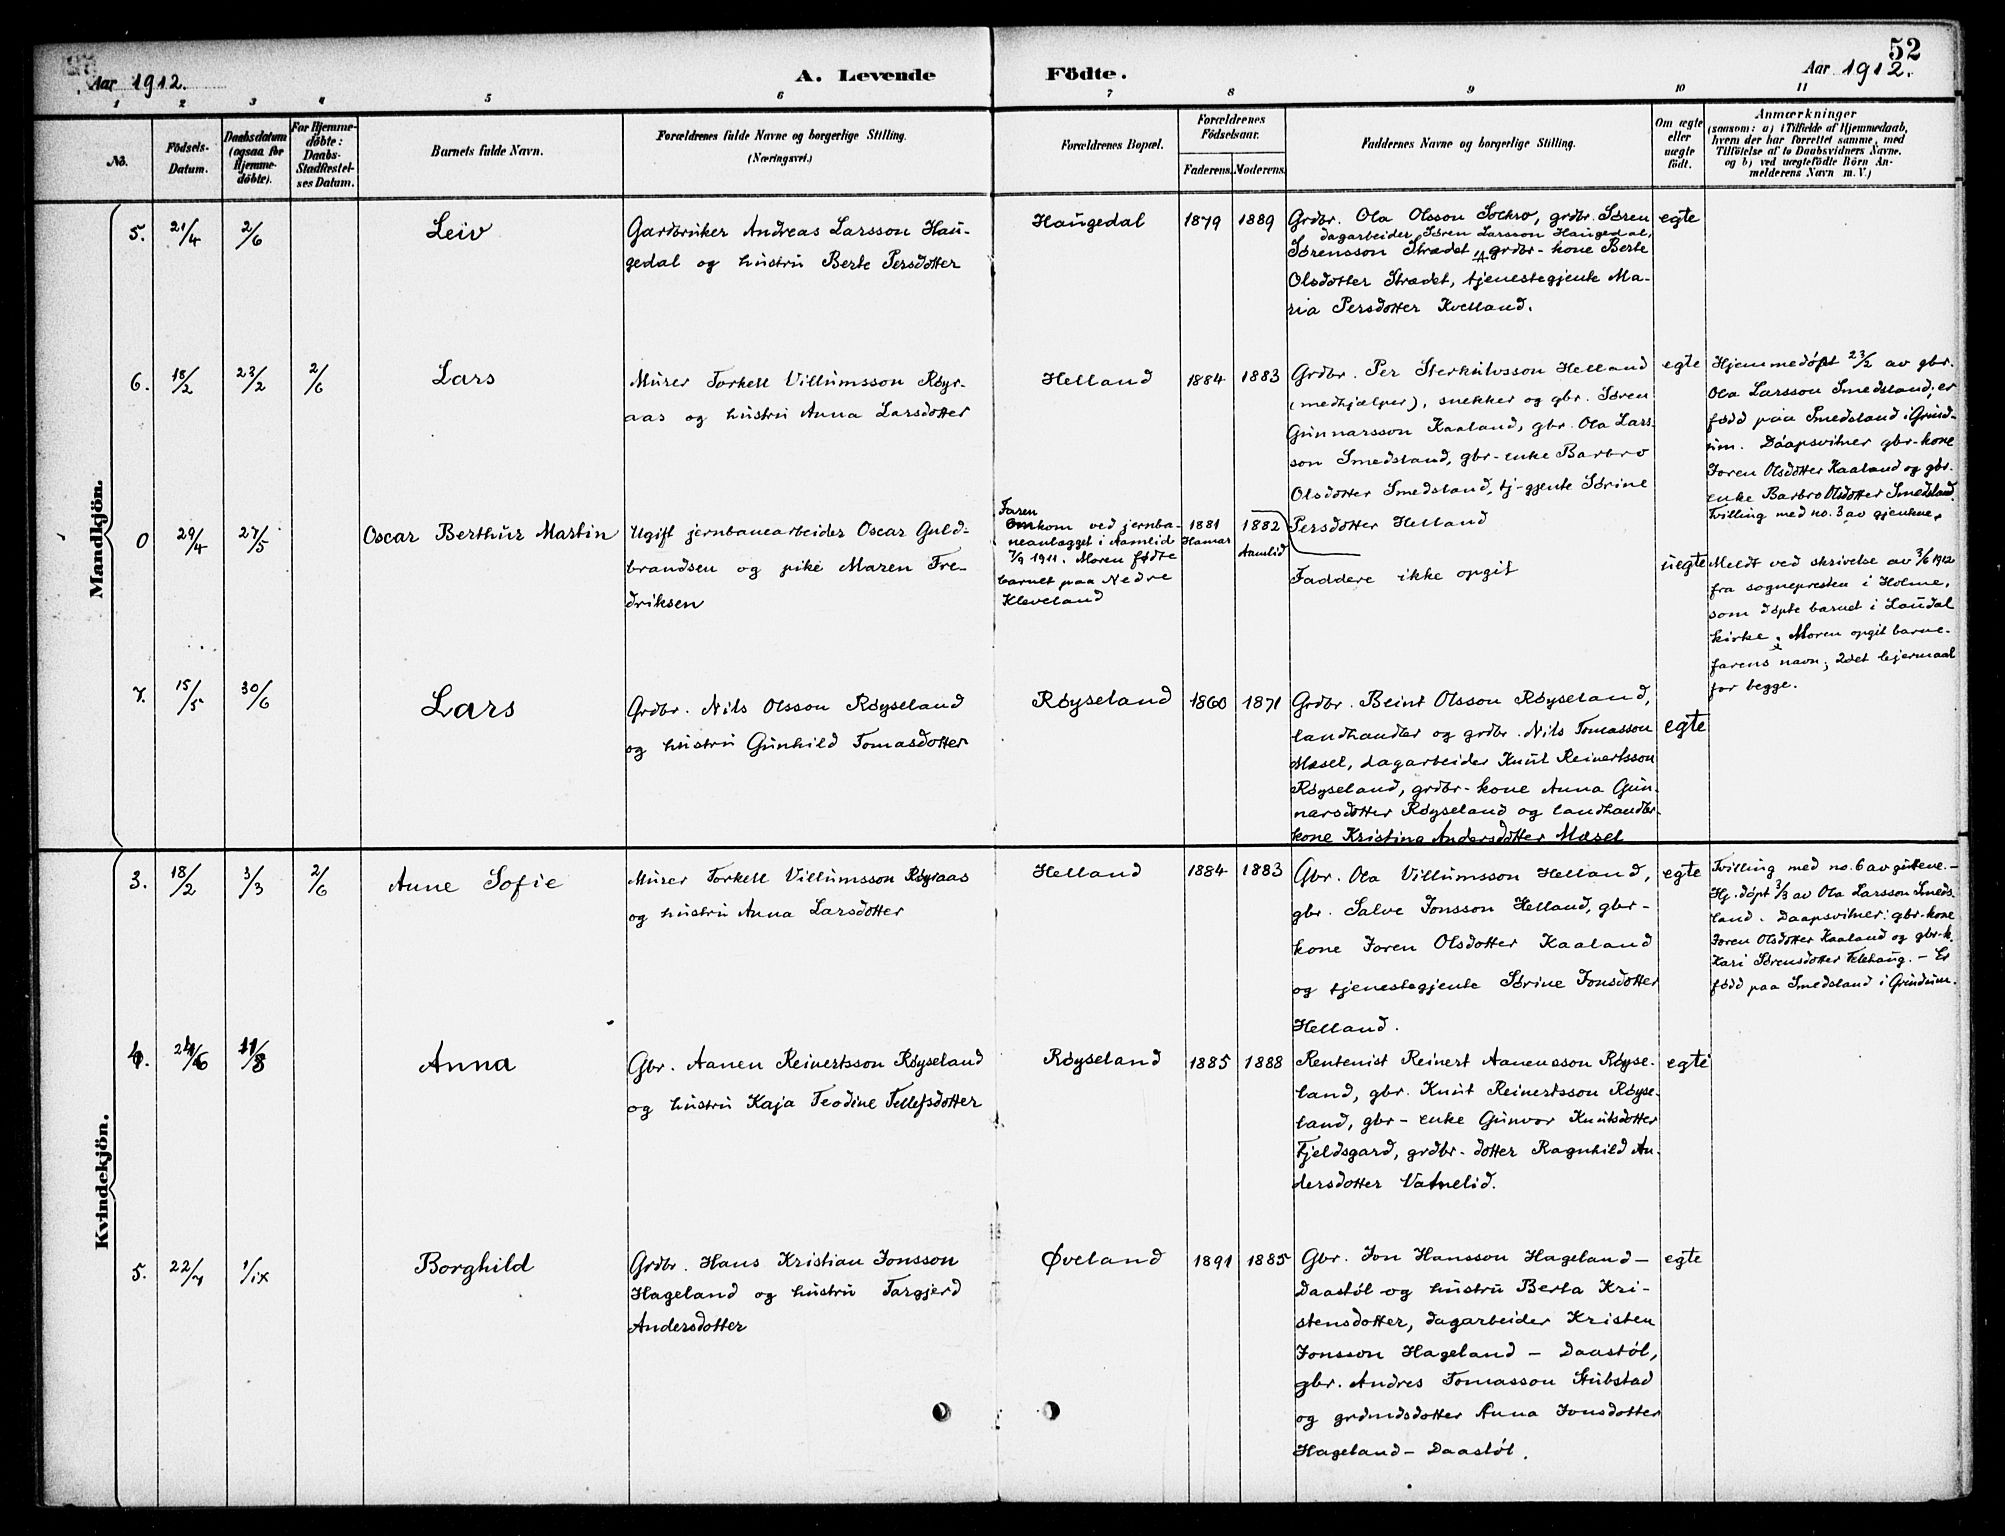 52
Aar 1912.
A. Levende Födte.
Aar 1912.
1 2 3 4 5 6 7 8 9 10 11
No.
Födsels-Datum.
Daabsdatum (ogsaa for Hjemme-döbte).
For Hjemme-döbte: Daabs-Stadfæstel-ses Datum.
Barnets fulde Navn.
Forældrenes fulde Navne og borgerlige Stilling. (Næringsvei.)
Forældrenes Bopæl.
Forældrenes Födselsaar.
Faderens. Moderens.
Faddernes Navne og borgerlige Stilling.
Om ægte eller uægte födt.
Anmærkninger
(saasom: a) i Tilfælde af Hjemmedaab,
hvem der har forrettet samme, med
Tilföielse af to Daabsvidners Navne.
og b) ved uægtefödte Börn An-
melderens Navn m. V.)
Mandkjön.
5. 21/4 2/6 Leiv
Gardbruker Andreas Larsson Hau-
gedal og hustru Berte Persdotter
Haugedal 1879 1889
Grdbr. Ola Olsson Sockro, grdbr. Søren
dagarbeider Søren Larsson Haugedal,
Sørensson Strædet, grdbr-kone Berte
Olsdotter Strædet, tjenestegjente Ma-
ria Persdotter Kvelland.
egte
6. 18/2 23/2 2/6 Lars
Murer Torkell Villumsson Røyr-
aas og hustru Anna Larsdotter
Helland 1884 1883
Grdbr. Per Sterkulvsson Helland
(medhjælper), snekker og gbr. Søren
Gunnarsson Kaaland, gbr. Ola Lars-
son Smedsland, gbr-enke Barbro
Olsdotter Smedsland, tj-gjente Sørine
Persdotter Helland
egte
Hjemmedøpt 23/2 av gbr.
Ola Larsson Smedsland; er
fødd paa Smedsland i Grind-
um. Daapsvitner gbr-kone
Joren Olsdotter Kaaland og gbr.
enke Barbro Olsdotter Smedsland.
Tvilling med no. 3 av gjentene.
0 29/4 27/5 Oscar Berthus Martin
Ugift jernbanearbeider Oscar Guld-
brandsen og pike Maren Fre-
driksen
Faren
omkom ved jernba-
neanlægget i Aamlid
7/9 1911. Moren fødte
barnet paa Nedre
Kleveland
1881 Hamar 1882 Aamlid
Faddere ikke opgit
uegte
Meldt ved skrivelse av 3/6 1912
fra sognepresten i Holme,
som døpte barnet i Laudal
kirke; Moren opgit barne-
farens navn; 2det lejermaal
for begge.
7. 15/5 30/6 Lars
Grdbr. Nils Olsson Røyseland
og hustru Gunhild Tomasdotter
Røyseland 1860 1871
Grdbr. Beint Olsson Røyseland,
landhandler og grdbr. Nils Tomasson
Mæsel, dagarbeider Knut Reinertsson
Røyseland, grdbr-kone Anna Gun-
narsdotter Røyseland og landhandler-
kone Kristina Andersdotter Mæsel
egte
Kvindekjön.
3. 18/2 3/3 2/6 Anne Sofie
Murer Torkell Villumsson Røyraas
og hustru Anna Larsdotter
Helland 1884 1883
Gbr. Ola Villumsson Helland,
gbr. Salve Jonsson Helland, gbr-
kone Joren Olsdotter Kaaland
og tjenestegjente Sørine Jonsdotter
Helland.
egte
Tvilling med no. 6 av guttene.-
Hj.døpt 3/3 av Ola Larsson Smeds-
land. Daapsvitner: gbr-kone
Joren Olsdotter Kaaland og gbr-k.
Kari Sørensdotter Telehaug. - Er
fødd paa Smedsland i Grindum.
4. 24/6 11/8 Anna
Gbr. Aanen Reinertsson Røyseland
og hustru Kaja Teodine Tellefsdotter
Røyseland 1885 1888
Rentenist Reinert Aanensson Røyse-
land, gbr. Knut Reinertsson Røyse-
land, gbr-enke Gunvor Knutsdotter
Fjeldsgard, grdbr-dotter Ragnhild An-
dersdotter Vatnelid.
egte
5. 22/7 1/ix Borghild
Grdbr. Hans Kristian Jonsson
Hageland og hustru Targjerd
Andersdotter
Øveland 1891 1885
Gbr. Jon Hansson Hageland-
Daastøl og hustru Berta Kri-
stensdotter, dagarbeider Kristen
Jonsson Hageland - Daastøl,
gbr. Andres Tomasson Stubstad
og grdmdsdotter Anna Jonsdotter
Hageland - Daastøl.
egte